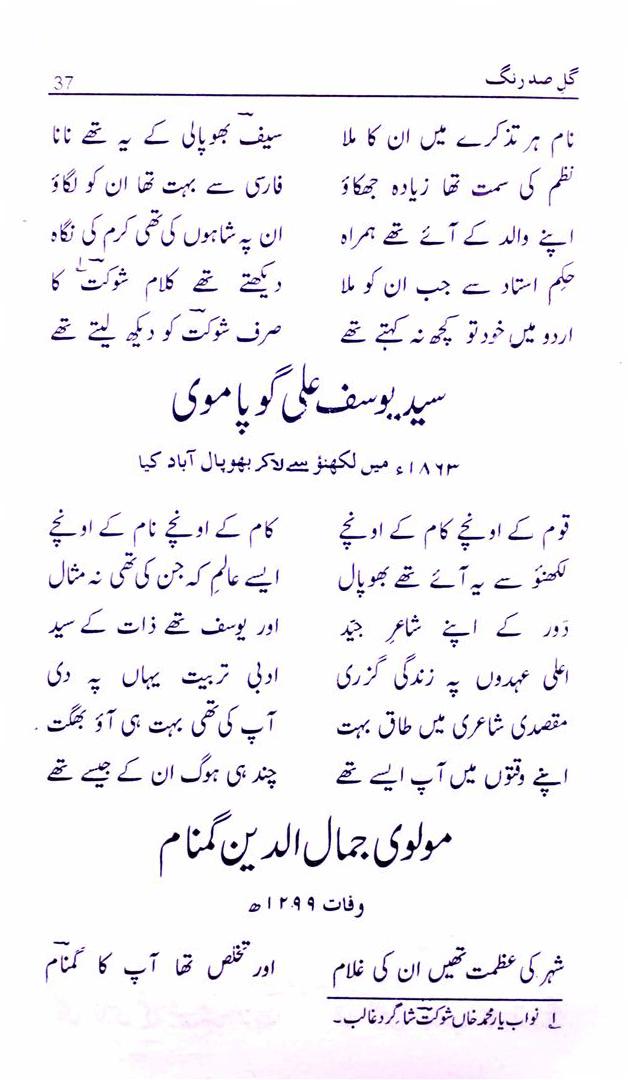 گلِ صد رنگ 37
نام ہر تذکرے میں ان کا ملا سیفؔ بھوپالی کے یہ تھے نانا
نظم کی سمت تھا زیادہ جھکاؤ فارسی سے بہت تھا ان کو لگاؤ
اپنے والد کے آئے تھے ہمراہ ان پہ شاہوں کی تھی کرم کی نگاہ
حکم استاد سے جب ان کو ملا دیکھتے تھے کلام شوکتؔ ۱ کا
اردو میں خود تو کچھ نہ کہتے تھے صرف شوکتؔ کو دیکھ لیتے تھے
سید یوسف علی گوپاموی
۱۸۶۳ء میں لکھنؤ سے لاکر بھوپال آباد کیا
قوم کے اونچے کام کے اونچے کام کے اونچے نام کے اونچے
لکھنؤ سے یہ آئے تھے بھوپال ایسے عالمِ کہ جن کی تھی نہ مثال
دَور کے اپنے شاعرِ جیّد اور یوسف تھے ذات کے سید
اعلیٰ عہدوں پہ زندگی گزری ادبی تربیت یہاں پہ دی
مقصدی شاعری میں طاق بہت آپ کی تھی بہت ہی آؤ بھگت
اپنے وقتوں میں آپ ایسے تھے چند ہی ہوگ ان کے جیسے تھے
مولوی جمال الدین گمنام
وفات ۱۲۹۹ھ
شہر کی عظمت تھیں ان کی غلام اور تخلص تھا آپ کا گمنامؔ
۱ نواب یار محمد خاں شوکتؔ شاگرد غالب۔